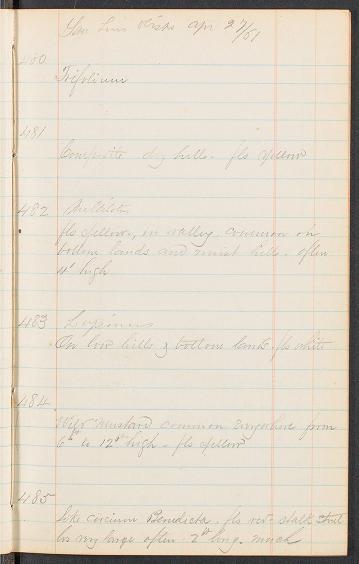 San Luis Obispo Apr 27/61
480
Trifolium
481
Composite dry hills. fls yellow
482 Melilotus
fls yellow, in valley common on
bottom lands and moist hills. often
4' high
483 Lupinus
On low hills & bottom lands, fls white
484
Wild Mustard common everywhere from
6 to 12 high. fls yellow
485
Like circium Benedicta. fls red. stalk
very large often 2 long. marsh